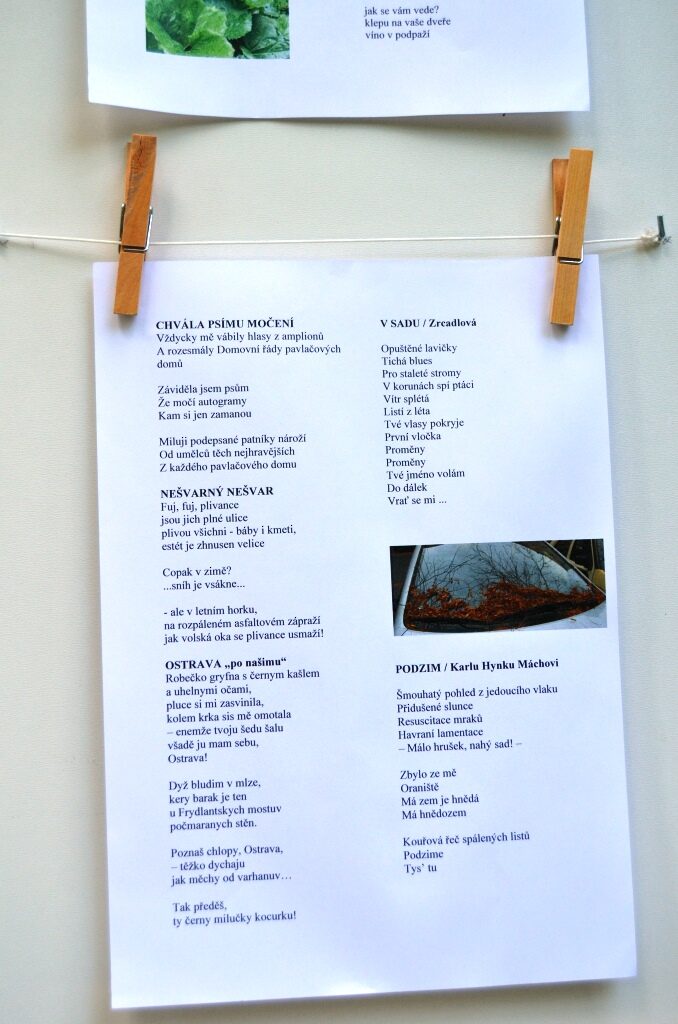 jak se vám vede?
klepu na vaše dveře
víno v podpaží
CHVÁLA PSÍMU MOČENÍ
Vždycky mě vábily hlasy z amplionů
A rozesmály Domovní řády pavlačových
domů
Záviděla jsem psům
Že močí autogramy
Kam si jen zamanou
Miluji podepsané patníky nároží
Od umělců těch nejhravějších
Z každého pavlačového domu
NEŠVARNÝ NEŠVAR
Fuj, fuj, plivance
jsou jich plné ulice
plivou všichni - báby i kmeti,
estét je zhnusen velice
Copak v zimě?
...sníh je vsákne...
- ale v letním horku,
na rozpáleném asfaltovém zápraží
jak volská oka se plivance usmaží!
OSTRAVA „po našimu“
Robečko gryfna s černym kašlem
a uhelnymi očami,
pluce si mi zasvinila,
kolem krka sis mě omotala
– enemže tvoju šedu šalu
všadě ju mam sebu,
Ostrava!
Dyž bludim v mlze,
kery barak je ten
u Frydlantskych mostuv
počmaranych stěn.
Poznaš chlopy, Ostrava,
– těžko dychaju
jak měchy od varhanuv…
Tak předěš,
ty černy milučky kocurku!
V SADU / Zrcadlová
Opuštěné lavičky
Tichá blues
Pro staleté stromy
V korunách spí ptáci
Vítr splétá
Listí z léta
Tvé vlasy pokryje
První vločka
Proměny
Proměny
Tvé jméno volám
Do dálek
Vrať se mi ...
PODZIM / Karlu Hynku Máchovi
Šmouhatý pohled z jedoucího vlaku
Přidušené slunce
Resuscitace mraků
Havraní lamentace
– Málo hrušek, nahý sad! –
Zbylo ze mě
Oraniště
Má zem je hnědá
Má hnědozem
Kouřová řeč spálených listů
Podzime
Tys’ tu